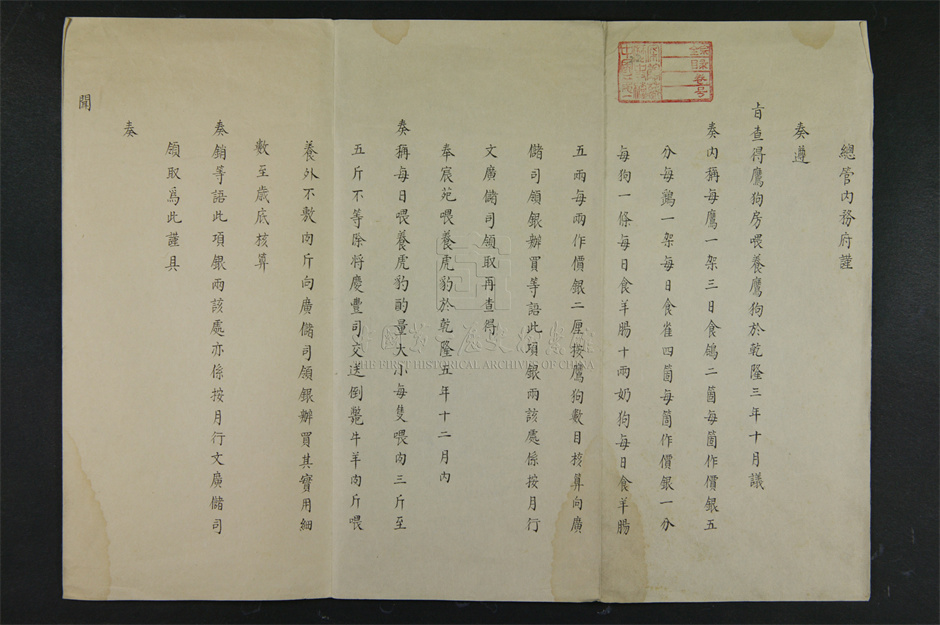 總管内務府謹
奏遵
旨查得鷹狗房喂養鷹狗於乾隆三年十月議
奏内稱每鷹一架三日食鴿二箇每箇作價銀五
分每鷂一架每日食雀四箇每箇作價銀一分
每狗一條每日食羊腸十兩奶狗每日食羊腸
五兩每兩作價銀二厘按鷹狗數目核算向廣
儲司領銀辦買等語此項銀兩該處係按月行
文廣儲司領取再查得
奉宸苑喂養虎豹於乾隆五年十二月内
奏稱每日喂養虎豹酌量大小每隻喂肉三斤至
五斤不等除將慶豐司交送倒斃牛羊肉斤喂
養外不敷肉斤向廣儲司領銀辦買其實用細
數至歲底核算
奏銷等語此項銀兩該處亦係按月行文廣儲司
領取爲此謹具
奏
聞
全宗
目錄
卷号
THE FIRST HISTORICAL ARCHIVES OF CHINA